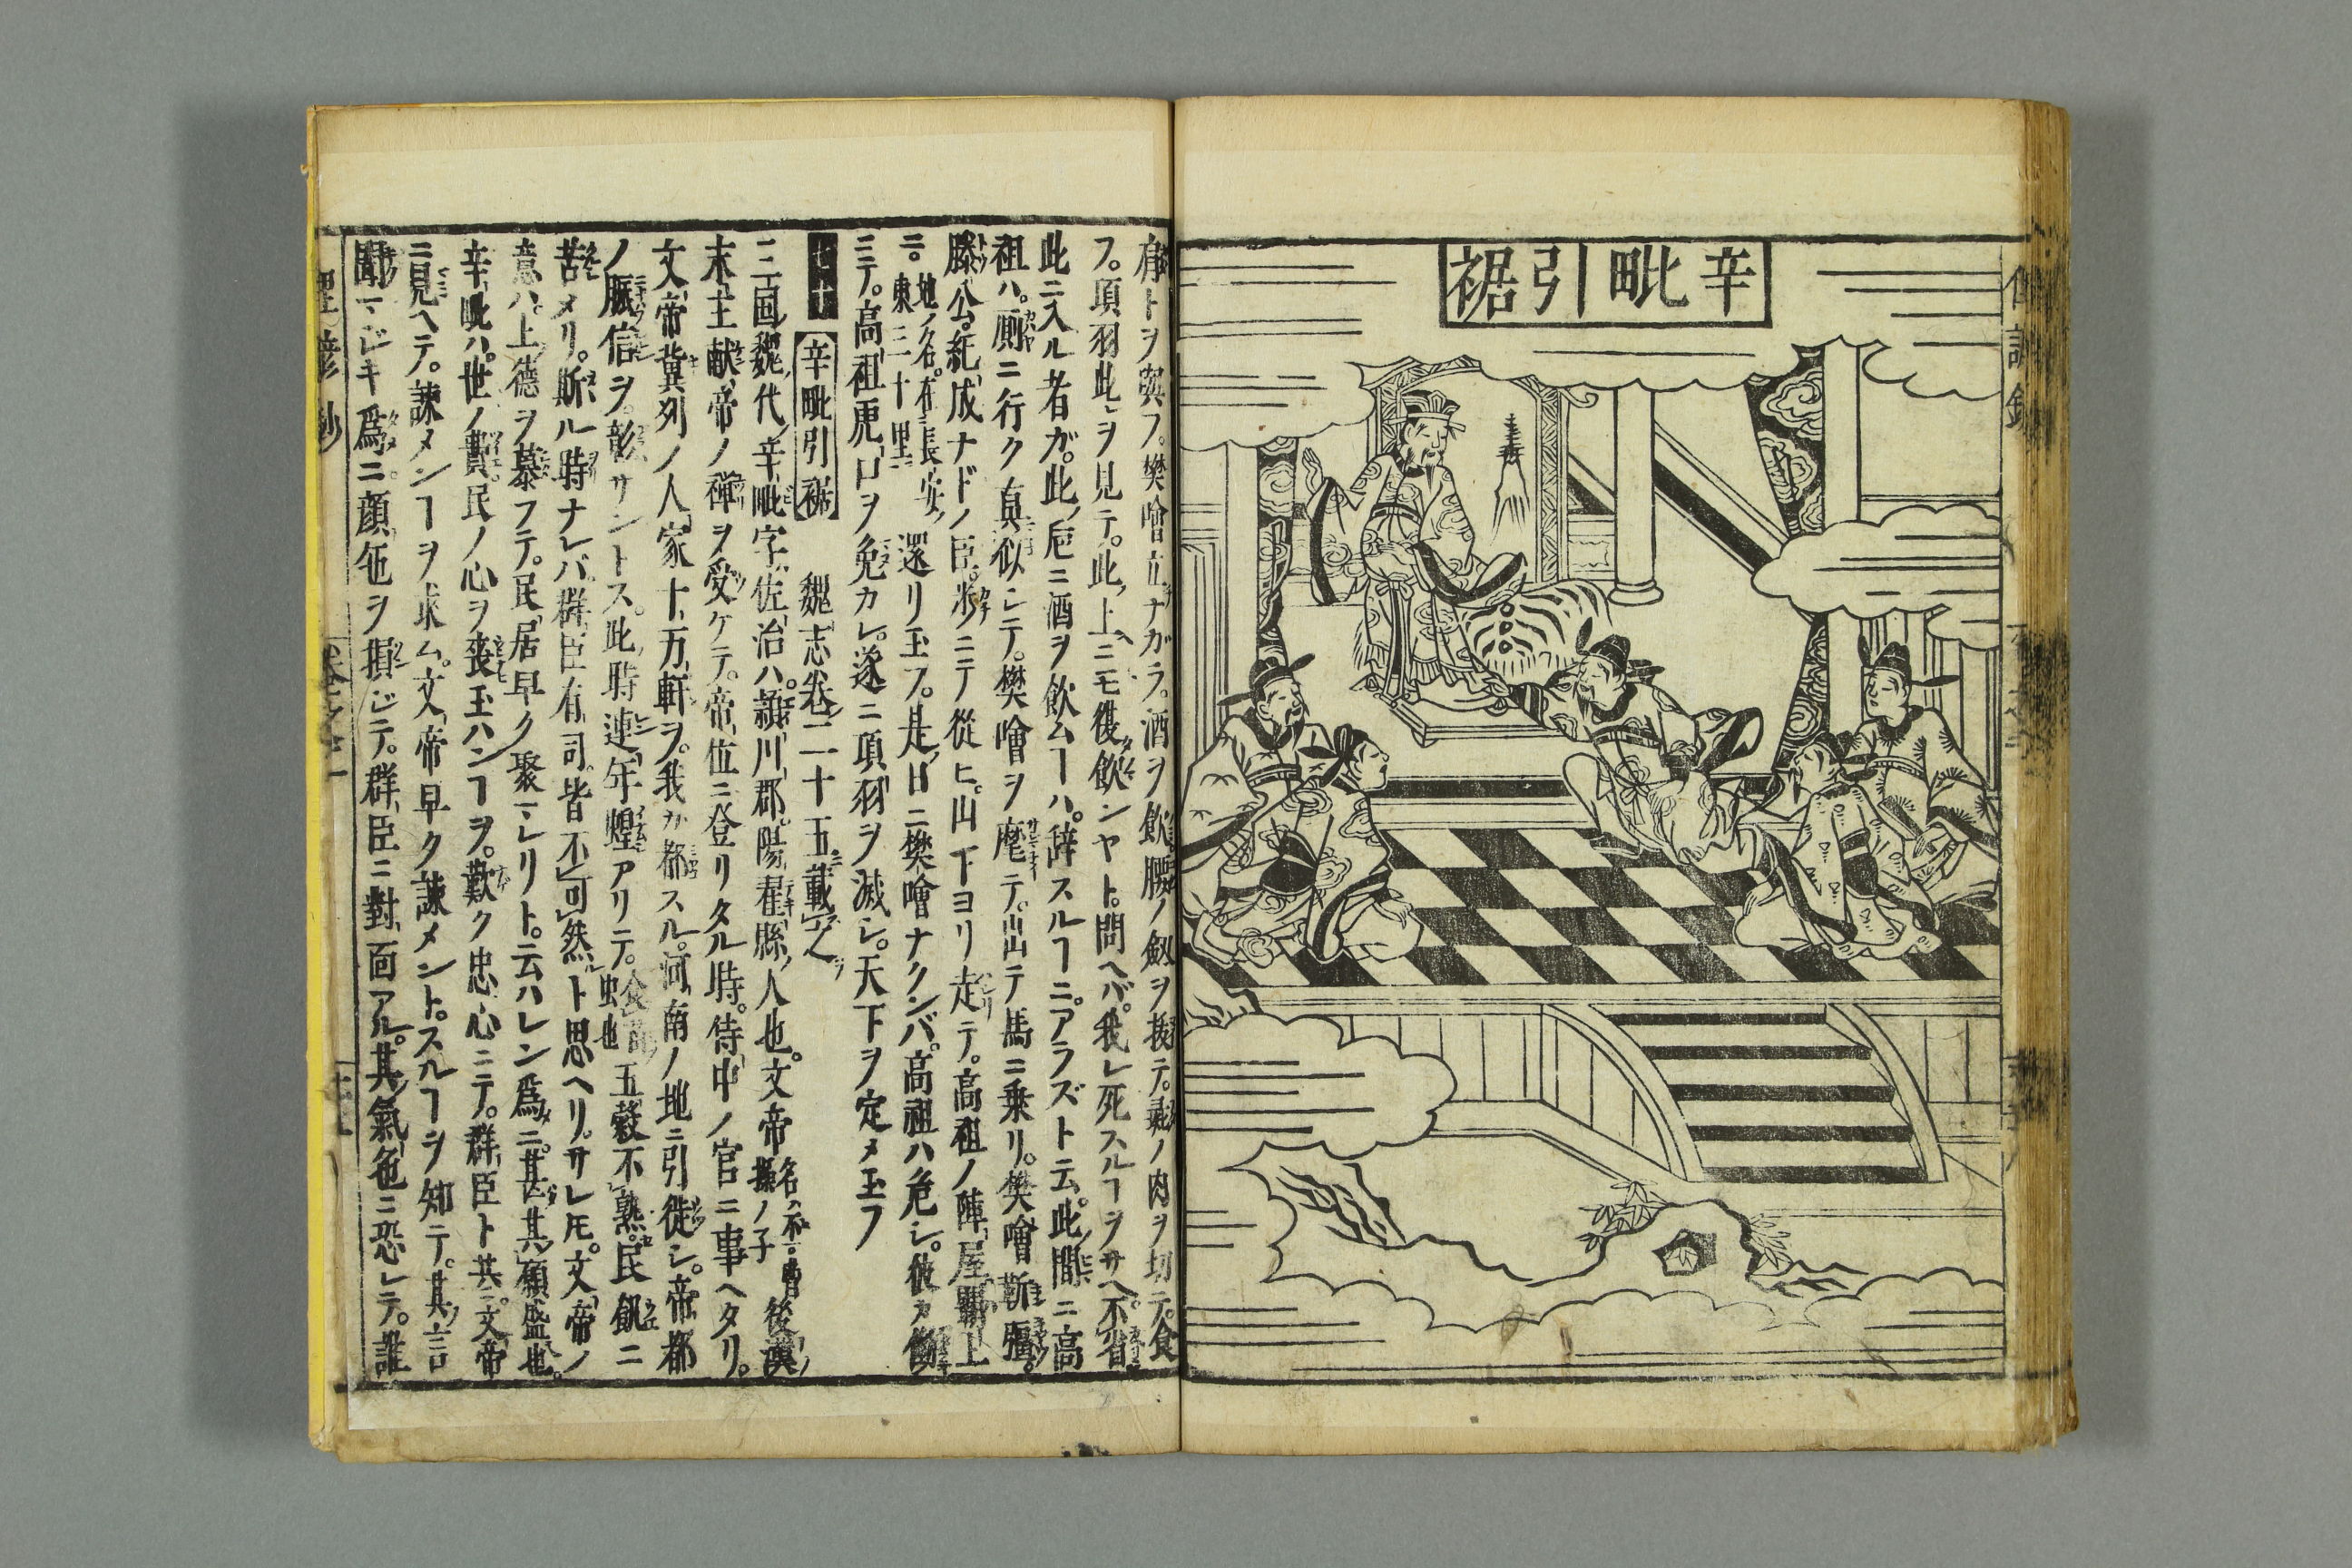 辛毗引裾
肩トヲ與フ。樊噲立ナガラ。酒ヲ飲。腰ノ劔ヲ抜テ。彘ノ肉ヲ切テ。食
フ。項羽此ヲ見テ。此上ニモ復飲ンヤト。問ヘバ。我レ死スルヿヲサヘ。不省
此ニ入ル者ガ。此ノ巵ニ酒ヲ飲ムヿハ。辞スルヿニ。アラズト云。此間ニ高
祖ハ。厠ニ行ク真似シテ。樊噲ヲ麾テ。出テ馬ニ乗リ。樊噲靳彊。
滕公。紀成ナドノ臣。歩ニテ從ヒ。山下ヨリ走テ。高祖ノ陣屋覇上
ニ。地ノ名。在長安東三十里ニ還リ玉フ。是日ニ樊噲ナクンバ。高祖ハ危シ。彼カ働
ニテ。高祖虎口ヲ免カレ。遂ニ項羽ヲ滅シ。天下ヲ定メ玉フ
七十 辛毗引裾 魏志巻二十五載之ヲ
三国魏ノ代。辛毗字佐治ハ。潁川郡。陽翟縣ノ人也。文帝名ハ丕。曹操ノ子後漢ノ
末主献帝ノ禅ヲ受ケテ。帝位ニ登リタル時。侍中ノ官ニ事ヘタリ。
文帝冀列ノ人家十万軒ヲ。我カ都スル。河南ノ地ニ引徙シ。帝都
ノ賑信ヲ。彰サントス。此時連年蝗アリテ。食苗虫也五穀不熟。民飢ニ
苦メリ。斯ル時ナレバ。群臣有司。皆不可然ト思ヘリ。サレ𪜈。文帝ノ
意ハ。上德ヲ慕フテ。民居早ク聚マレリト。云ハレン爲ニ。甚其願盛也。
辛毗ハ。世ノ費。民ノ心ヲ喪玉ハンヿヲ。歎ク忠心ニテ。群臣ト共ニ。文帝
ニ見ヘテ。諫メンヿヲ求ム。文帝早ク諫メント。スルヿヲ知テ。其言
聞マジキ爲ニ。顔色ヲ損ジテ。群臣ニ對面アル。其氣色ニ恐レテ。誰